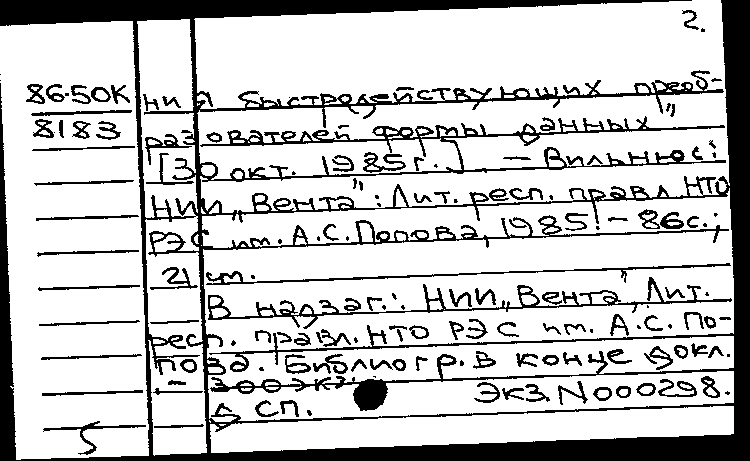 2.
86-50К ния быстродействующих преоб-
8183 разователей формы данных"
[30 окт. 1985г.] – Вильнюс:
НИИ „Вента": Лит. респ. правл. НТО
РЭС им. А.С.Попова, 1985. – 86с.;
21 см.
В надзаг.: НИИ „Вента", Лит.
респ. правл. НТО РЭС им. А.С. По-
пова. Библиогр. в конце докл.
– 300 экз.
ДСП. Экз. N000298.
5